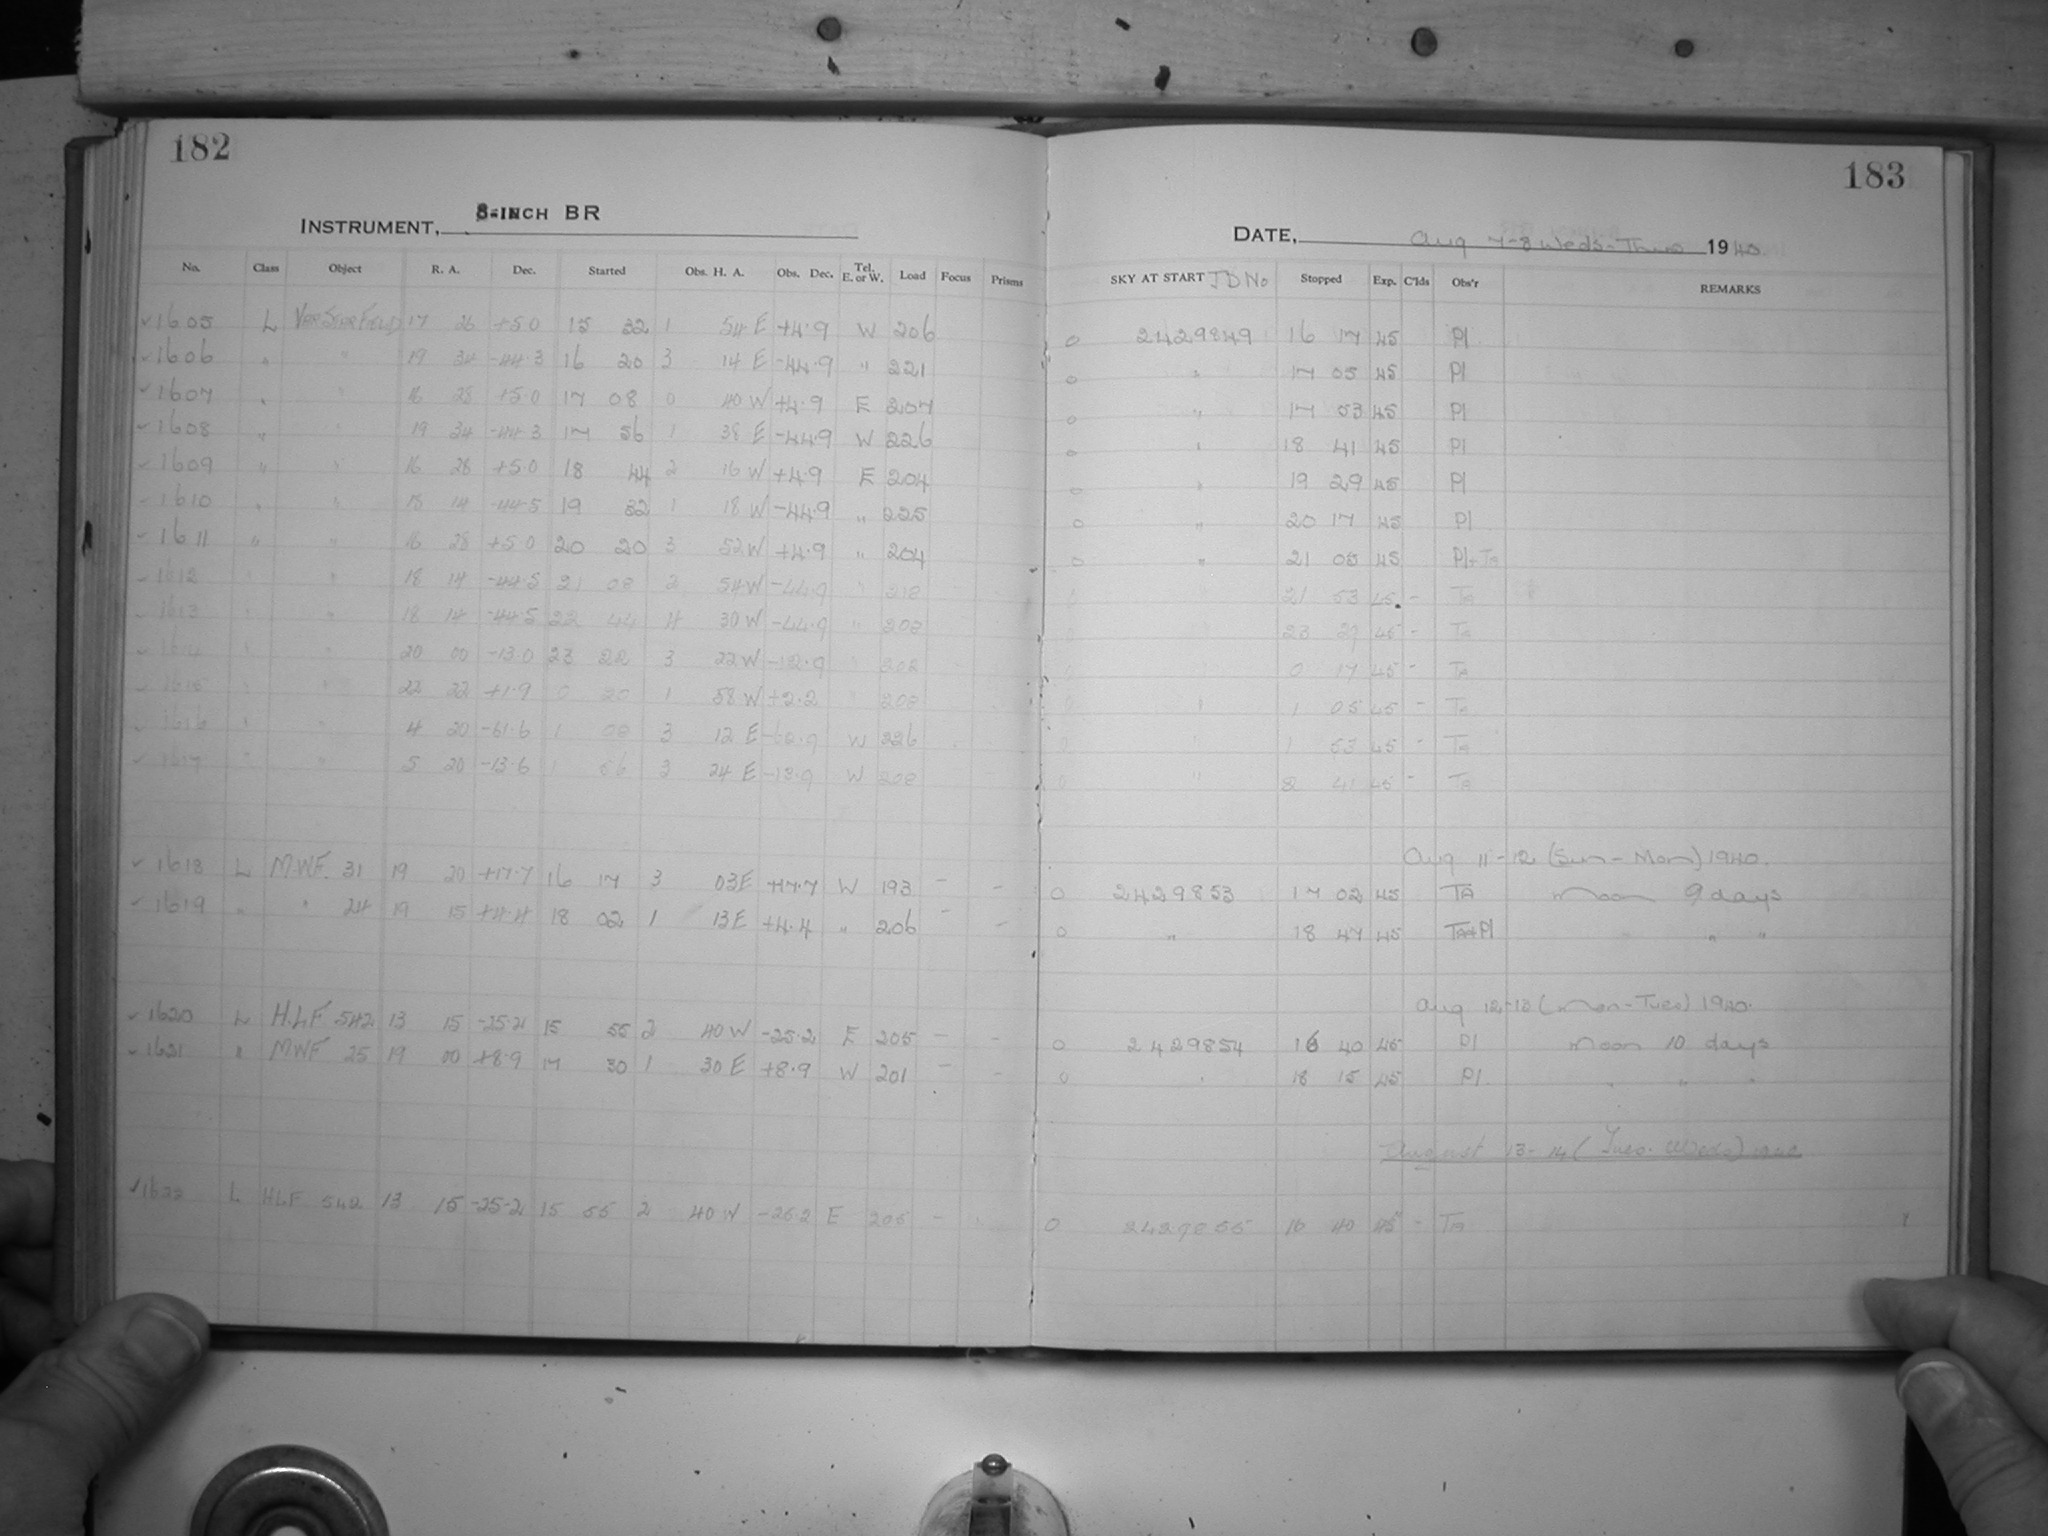 182
183
INSTRUMENT, 8-INCH BR
DATE, Aug 7-8 Weds-Thurs 1940
No. Class Object R. A. Dec. Started Obs. H. A. Obs. Dec. Tel. E. or W. Load Focus Prisms SKY AT START JD No Stopped Exp. C'lds Obs'r REMARKS
✓1605 L VAR STAR FIELD 17 26 +5.0 15 32 1 54 E +4.9 W 206 0 2429849 16 17 45 Pl
✓1606 " " 19 34 -44.3 16 20 3 14 E -44.9 " 221 0 " 17 05 45 Pl
✓1607 " " 16 28 +5.0 17 08 0 40 W +4.9 E 207 0 " 17 53 45 Pl
✓1608 " " 19 34 -44.3 17 56 1 38 E -44.9 W 226 0 " 18 41 45 Pl
✓1609 " " 16 28 +5.0 18 44 2 16 W +4.9 E 204 0 " 19 29 45 Pl
✓1610 " " 18 14 -44.5 19 32 1 18 W -44.9 " 225 0 " 20 17 45 Pl
✓1611 " " 16 28 +5.0 20 20 3 52 W +4.9 " 204 0 " 21 05 45 Pl+Ta
✓1612 " " 18 14 -44.5 21 08 2 54 W -44.9 " 0 21 53 45 - Ta
✓1613 " " 18 14 -44.5 22 44 4 30 W -44.9 " 208 0 23 29 45 - Ta
✓1614 " " 20 00 -13.0 23 22 W -12.9 " 202 0 0 17 45 - Ta
✓1615 " " 22 22 +1.9 0 20 1 58 W +2.2 " 208 0 " 1 05 45 - Ta
✓1616 " " 4 20 -61.6 1 08 3 12 E W 226 0 " 1 53 45 - Ta
✓1617 " " 5 20 -13.6 1 56 3 24 E -13.9 W 208 0 " 2 41 45 - Ta
Aug 11-12 (Sun-Mon) 1940.
✓1618 L M.W.F. 31 19 20 +17.7 16 17 3 03 E +17.7 W 193 - - 0 2429853 17 02 45 TA moon 9 days
✓1619 " " 24 19 15 +4.4 18 02 1 13 E +4.4 " 206 - - 0 " 18 47 45 Ta+Pl " "
Aug 12-13 (Mon-Tues) 1940.
✓1620 L H.L.F 542 13 15 -25.2 15 55 2 40 W -25.2 E 205 - - 0 2429854 16 40 45 Pl moon 10 days
✓1621 " MWF 25 19 00 +8.9 17 30 1 30 E +8.9 W 201 - - 0 " 18 15 45 Pl " " "
August 13-14 (Tues. Weds) 1940
✓1622 L HLF 542 13 15 -25.2 15 55 2 40 W -25.2 E 205 - 0 2429855 16 40 45 - Ta